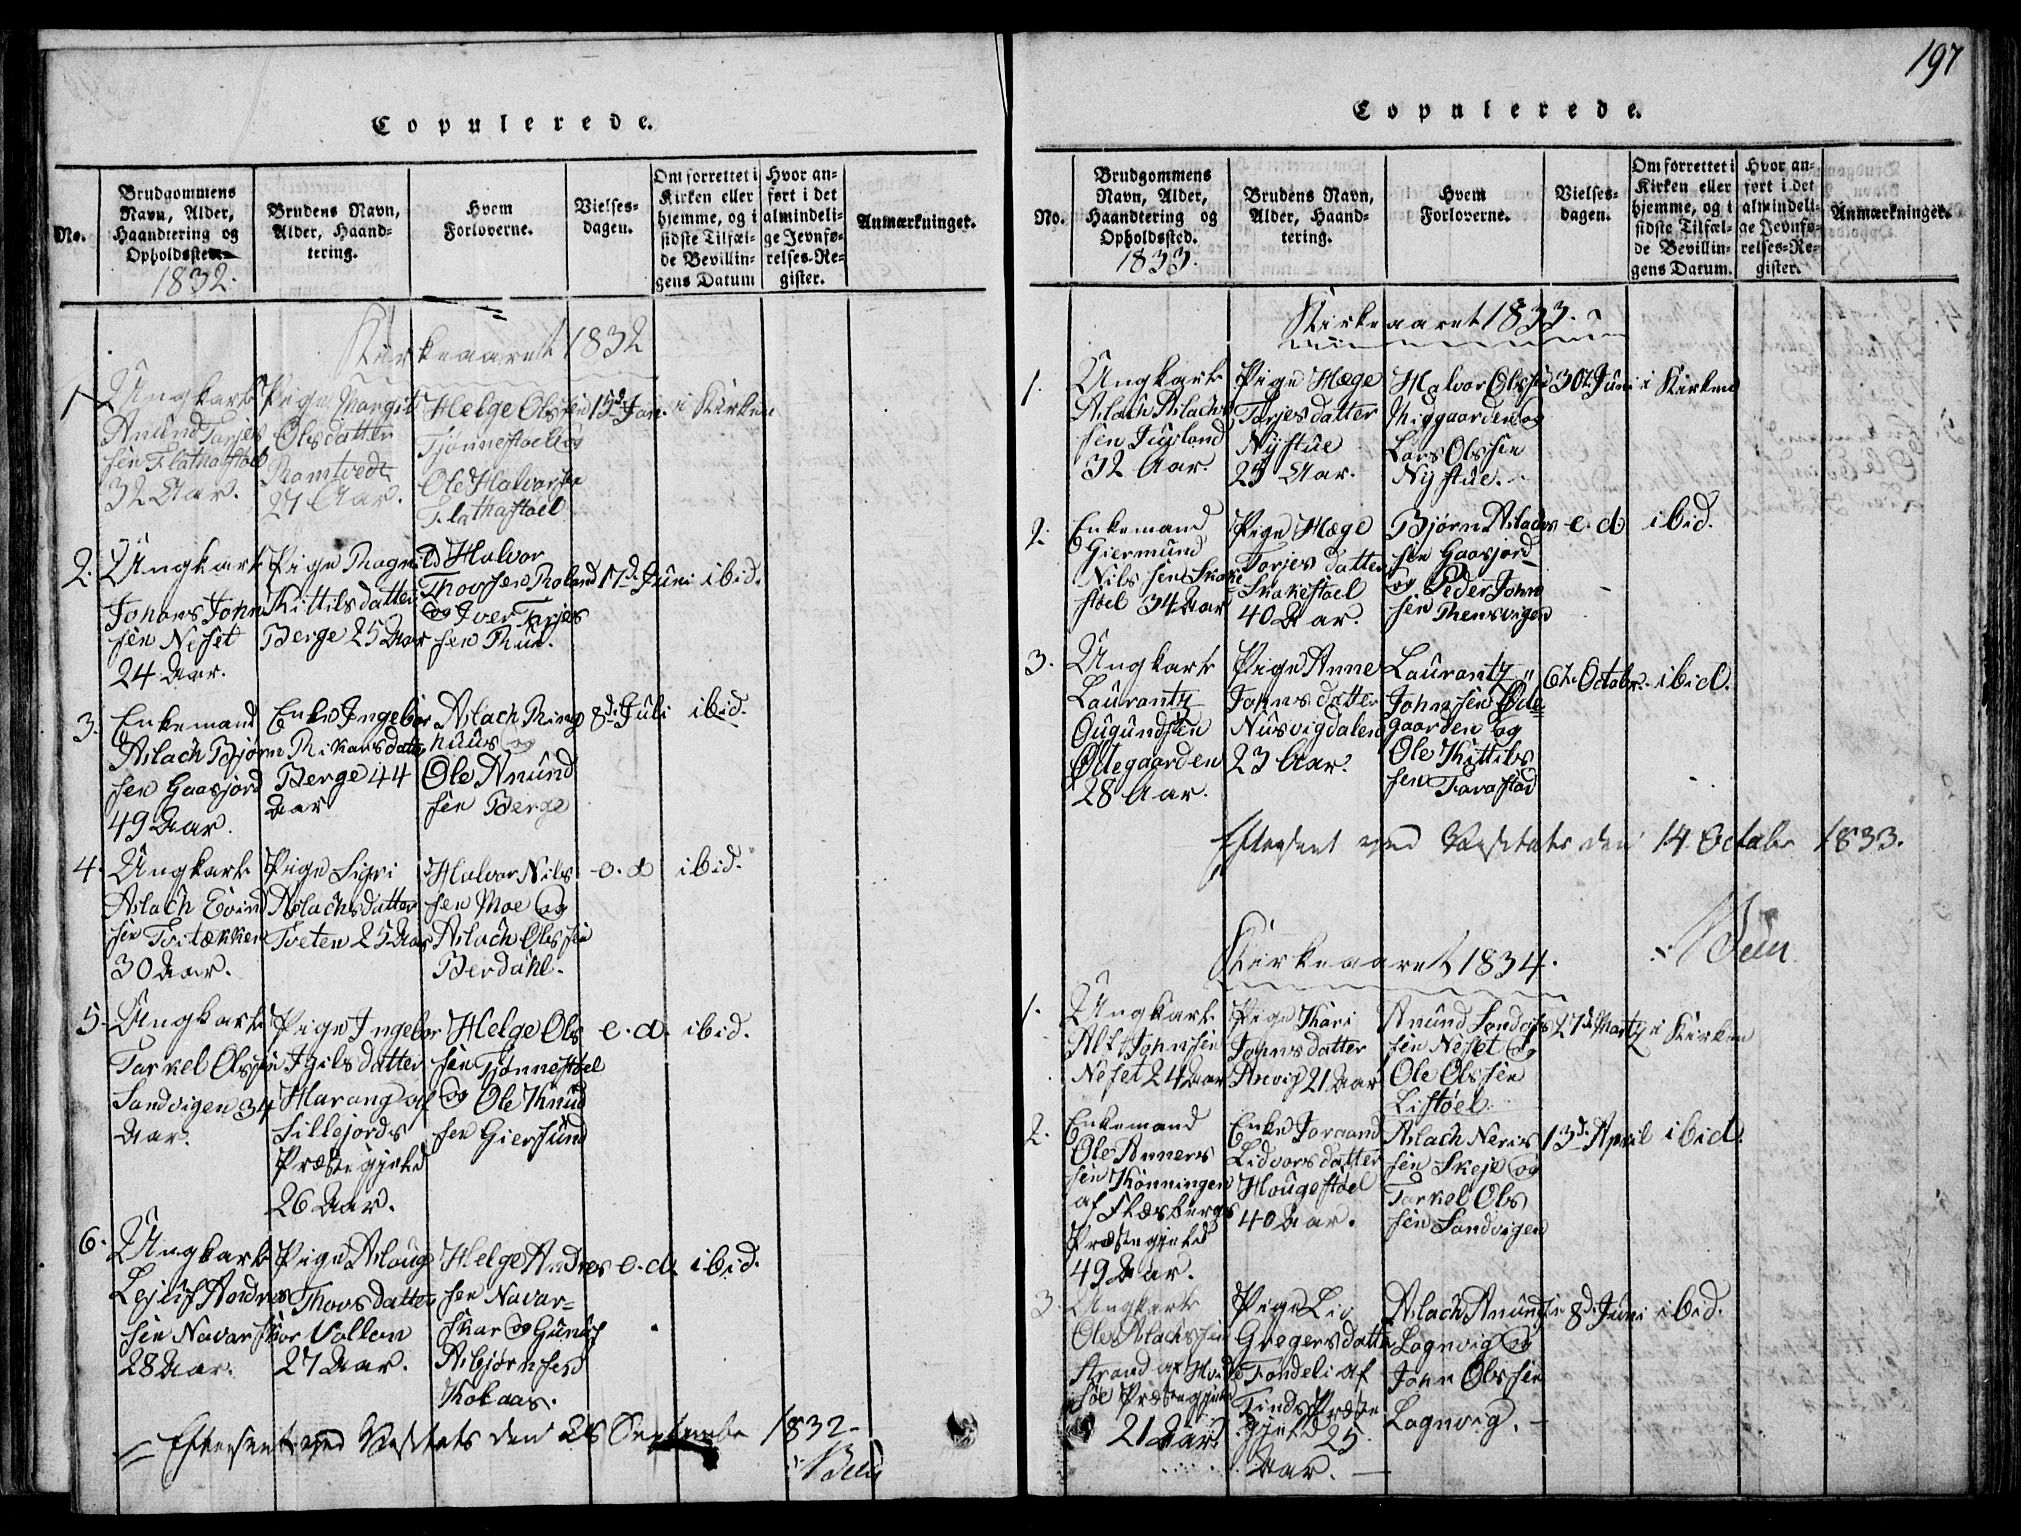 197
Copulerede.
No.
Brudgommens Navn, Alder, Haandtering og Opholdssted.
1832.
Brudens Navn, Alder, Haandtering.
Hvem Forloverne.
Vielses-dagen.
Om forrettet i Kirken eller hjemme, og i sidste Tilfælde Bevillingens Datum
Hvor anført i det almindelige Jevnførelses-Register.
Anmærkninger.
Kirkeaaret 1832
1.
Ungkarl
Anund Tarjes
sen Flathastøel
32 Aar.
Pige Margit
Olsdatter
Ramtvedt
27 Aar.
Helge Olssen
Tjønnestøel og
Ole Halvorsen
Flathastøel
15d Jan.
i Kirken
2.
Ungkarl
Johans John
sen Neset
24 Aar.
Pige Ragnild
Kittilsdatter
Berge 25 Aar
Halvor
Thovsen Roland
og Iver Tarjes
sen Ruu.
17d Juni
ibid.
3.
Enkemand
Aslach Bjørn
sen Gaasjord
49 Aar.
Enke Ingebor
Rikarsdatter
Berge 44
Aar
Aslach Ring
huus og
Ole Anund
sen Berge
8d Juli
ibid.
4.
Ungkarl
Aslach Evind
sen Tvitækken
30 Aar.
Pige Sigri
Aslachsdatter
Tveten 25 Aar
Halvor Nils
sen Moe og
Aslach Olssen
Berdahl.
e. d
ibid.
5.
Ungkarl
Tarkel Olssen
Sandvigen 34
Aar.
Pige Ingebor
Igilsdatter
Havang af
Sillejords
Præstegjeld
26 Aar.
Helge Ols
sen Tjønnestøel
og Ole Knud
sen Giersund
e. d.
ibid.
6.
Ungkarl
Lejulf Andres
sen Navarskor
28 Aar.
Pige Aslaug
Thovsdatter
Vollan
27 Aar.
Helge Andres
sen Navar=
skar og Gunulf
Asbjørnsen
Kokaas.
e. d.
ibid.
Efterseet ved Visitats den 26 September 1832
Copulerede.
No.
Brudgommens Navn, Alder, Haandtering og Opholdssted.
1833.
Brudens Navn, Alder, Haandtering.
Hvem Forloverne.
Vielses-dagen.
Om forrettet i Kirken eller hjemme, og i sidste Tilfælde Bevillingens Datum.
Hvor anført i det almindelige Jevnførelses-Register.
Anmærkninger.
Kirkeaaret 1833.
1.
Ungkarl
Aslach Aslach
sen Juvland
32 Aar.
Pige Hæge
Tarjesdatter
Nystue
23 Aar.
Halvor Olssen
Miggaarden og
Lars Olssen
Nystue.
30t Juni
i Kirken
2.
Enkemand
Giermund
Nilssen Skake
støel 34 Aar
Pige Hæge
Torjesdatter
Skakestøel
40 Aar.
Bjørn Aslachs
sen Gaasjord
og Peder John
sen
e. d
ibid.
3.
Ungkarl
Laurantz
Øugundsen
Ødegaarden
28 Aar.
Pige Anne
Johnsdatter
Nusvigdalen
23 Aar.
Laurantz
Johnssen Øde
gaarden og
Ole Kittils
sen Tarastad
6t Octobr.
ibid.
Efterseet ved Visitats den 14 Octobr 1833.
Kirkeaaret 1834.
1.
Ungkarl
Alf Johnsen
Neset 24 Aar
Pige Kari
Johnsdatter
21 Aar
Anund
sen Neset og
Ole Olssen
Listøel
27d Martz
i Kirken
2.
Enkemand
Ole Anners
sen Kønningen
af Flæsbergs
Præstegjeld
49 Aar.
Enke Joraand
Lidvorsdatter
Hougestøel
40 Aar.
Aslach Neris
sen Skeje og
Tarkel Ols
sen Sandvigen
13d April
ibid.
3.
Ungkarl
Ole Aslachssen
Strand af Hvide
søe Præstegjeld
21 Aar
Pige Liv
Gregersdatter
Fondeli af
Tinds Præste
gjeld 25
Aar.
Aslach Anundsen
Lognvig og
John Olssen
Lognvig.
8d Juni
ibid.